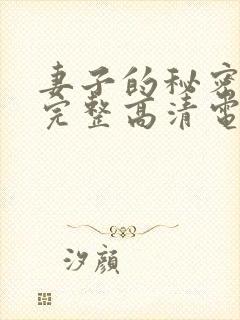 妻子的秘密
完整高清電
汐顔